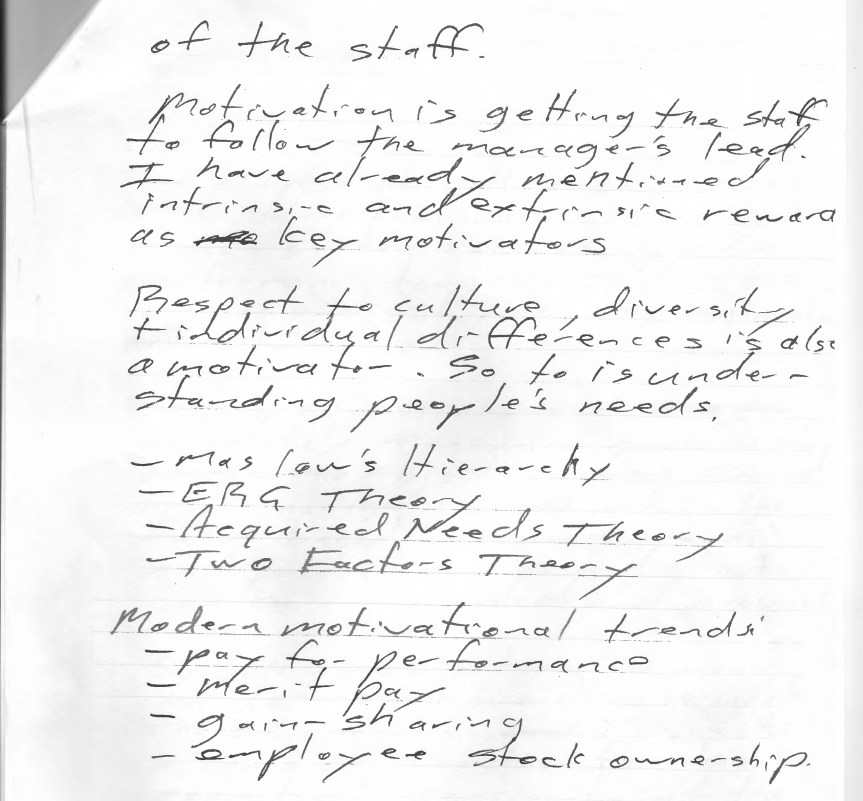 of the staff.
Motivation is getting the staff
to follow the manager's lead.
I have already mentioned
intrinsic and extrinsic reward
as key motivators
Respect to culture, diversity
+ individual differences is also
a motivator. So to is under-
standing people's needs.
- Maslow's Hierarchy
- ERG Theory
- Acquired Needs Theory
- Two Factors Theory
Modern motivational trends:
- pay for performance
- merit pay
- gain-sharing
- employee stock ownership.